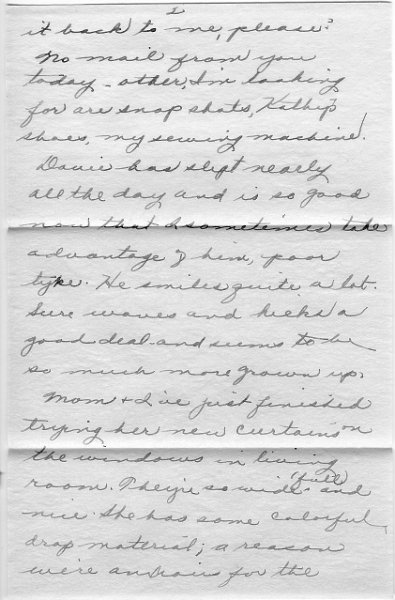 2
it back to me, please?
No mail from you
today - other, I'm looking
for are snap shots, Kathy's
shoes, my sewing machine!
Davie has slept nearly
all the day and is so good
now that I sometimes take
advantage of him, poor
tyke. He smiles quite a lot.
Sure waves and kicks a
good deal and seems to be
so much more grown up.
Mom & I've just finished
trying her new curtains on
the windows in living
room. They're so wide (full) and
nice. She has some colorful
drap material; a reason
we're anxious for the